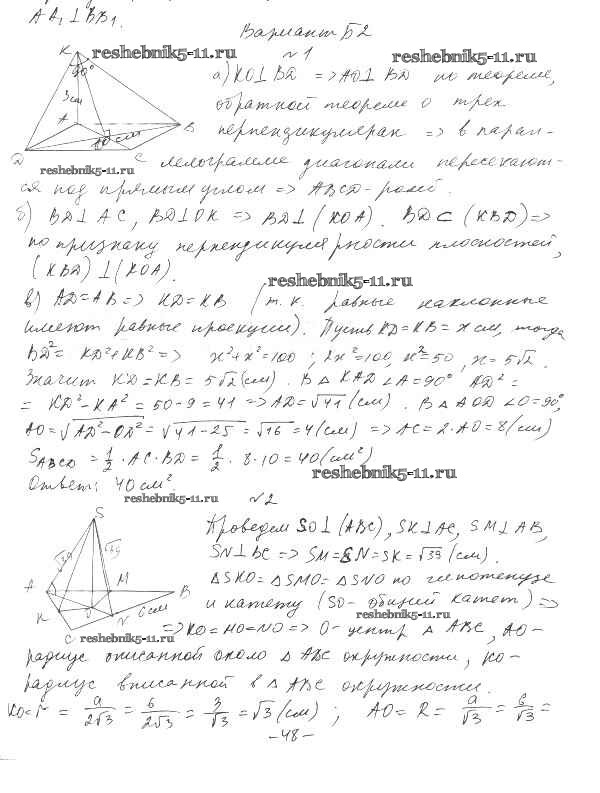 AA₁⊥BB₁.
Вариант Б2
reshebnik5-11.ru
reshebnik5-11.ru
№1
K
90°
3см
A
B
10 см
D
C
reshebnik5-11.ru
а) KO⊥BD => AO⊥BD по теореме,
обратной теореме о трех
перпендикулярах => в парал-
лелограмме диагонали пересекают-
ся под прямым углом => ABCD - ромб.
б) BD⊥AC, BD⊥OK => BD⊥(KOA). BD⊂(KBD) =>
по признаку перпендикулярности плоскостей,
(KBD)⊥(KOA).
reshebnik5-11.ru
в) AD=AB => KD=KB (т.к. равные наклонные
имеют равные проекции). Пусть KD=KB=x см, тогда
BD²= KD²+KB² => x²+x²=100; 2x²=100, x²=50, x=5√2.
Значит KD=KB=5√2 (см). В △KAD ∠A=90° AD²=
= KD²-KA² = 50-9=41 => AD=√41 (см). В △AOD ∠O=90°,
AO=√AD²-OD²=√41-25=√16=4(см) => AC=2·AO=8(см)
S ABCD = 1/2·AC·BD = 1/2·8·10=40(см²)
reshebnik5-11.ru
Ответ: 40 см².
reshebnik5-11.ru
№2
S
√39
√39
A
M
B
K
O
N
6см
C
reshebnik5-11.ru
Проведем SO⊥(ABC), SK⊥AC, SM⊥AB,
SN⊥BC => SM=SN=SK=√39 (см).
△SKO=△SMO=△SNO по гипотенузе
reshebnik5-11.ru
и катету (SO- общий катет) =>
=> KO=MO=NO => O- центр △ABC, AO-
радиус описанной около △ABC окружности, KO-
радиус вписанной в △ABC окружности.
KO=r = a/2√3 = 6/2√3 = 3/√3 = √3 (см); AO=R= a/√3 = 6/√3 =
-48-